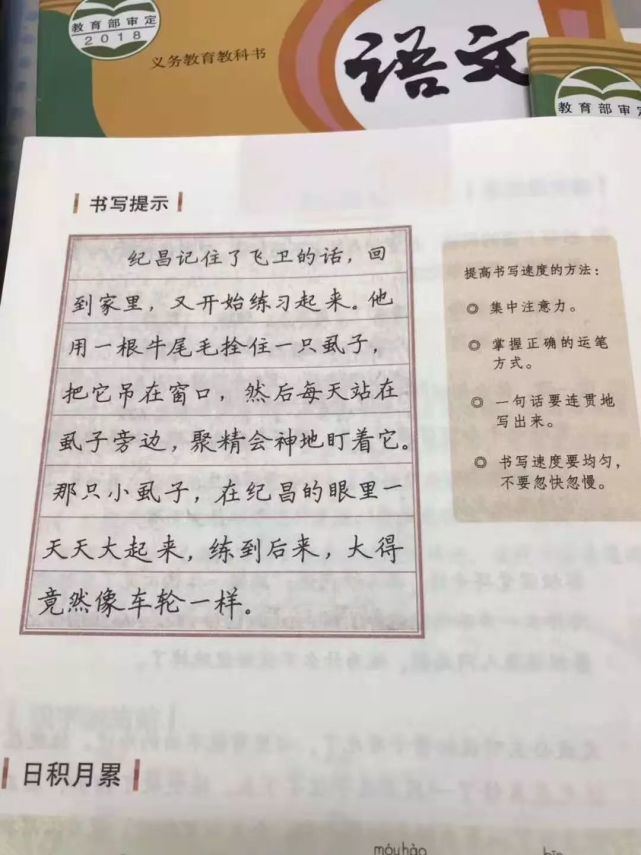 教育部审定
2018
义务教育教科书
语文
教育部审定
书写提示
纪昌记住了飞卫的话，回
到家里，又开始练习起来。他
用一根牛尾毛拴住一只虱子，
把它吊在窗口，然后每天站在
虱子旁边，聚精会神地盯着它。
那只小虱子，在纪昌的眼里一
天天大起来，练到后来，大得
竟然像车轮一样。
提高书写速度的方法：
◎ 集中注意力。
◎ 掌握正确的运笔
方式。
◎ 一句话要连贯地
写出来。
◎ 书写速度要均匀，
不要忽快忽慢。
日积月累
móu hào